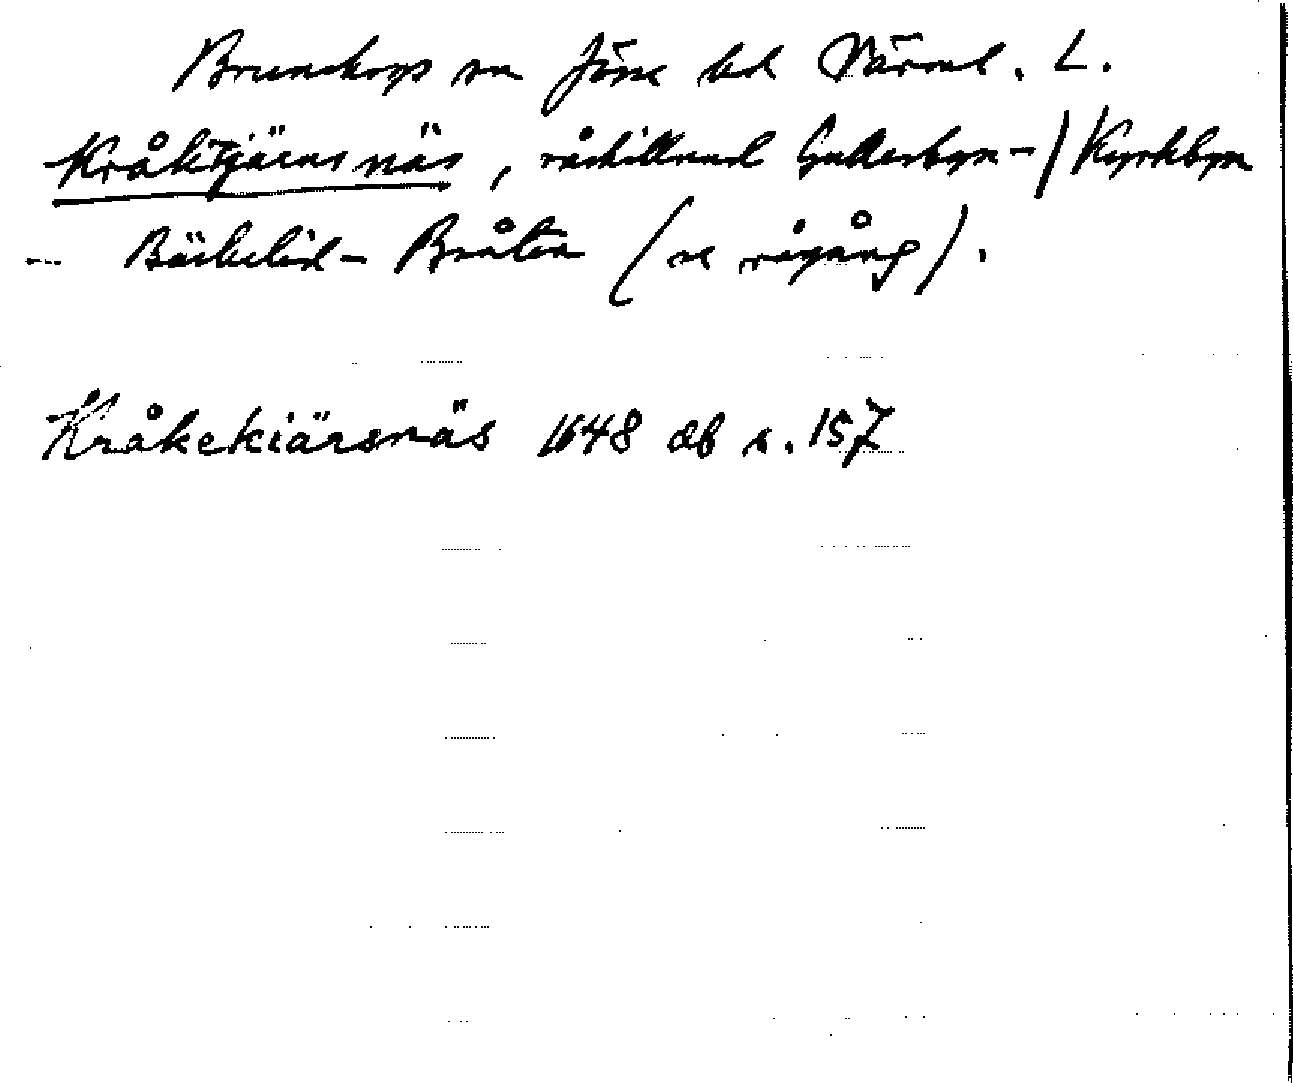 Brunskogs sn Jösse hd Värml. L.
Kråktjärnsnäs, råskillnad Gullerbyn-/Kyrkbyn
-- Bäckelid - Bråten (se rågång).
Kråkekiärsnäs 1648 ab s. 157